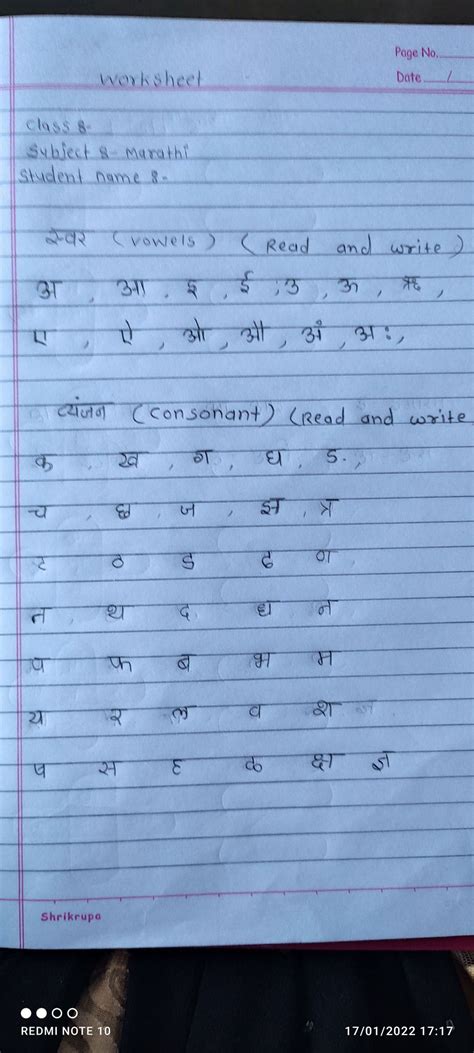 Page No.
Worksheet Date /
Class :-
Subject :- Marathi
Student name :-
स्वर (vowels) (Read and write)
अ , आ , इ , ई , उ , ऊ , ऋ ,
ए , ऐ , ओ , औ , अं , अः ,
व्यंजन (Consonant) (Read and write
क , ख , ग , घ , ङ ,
च , छ , ज , झ , त्र
ट ठ ड ढ ण
त थ द ध न
प फ ब भ म
य र ल व श
ष स ह ळ क्ष ज्ञ
Shrikrupa
REDMI NOTE 10 17/01/2022 17:17